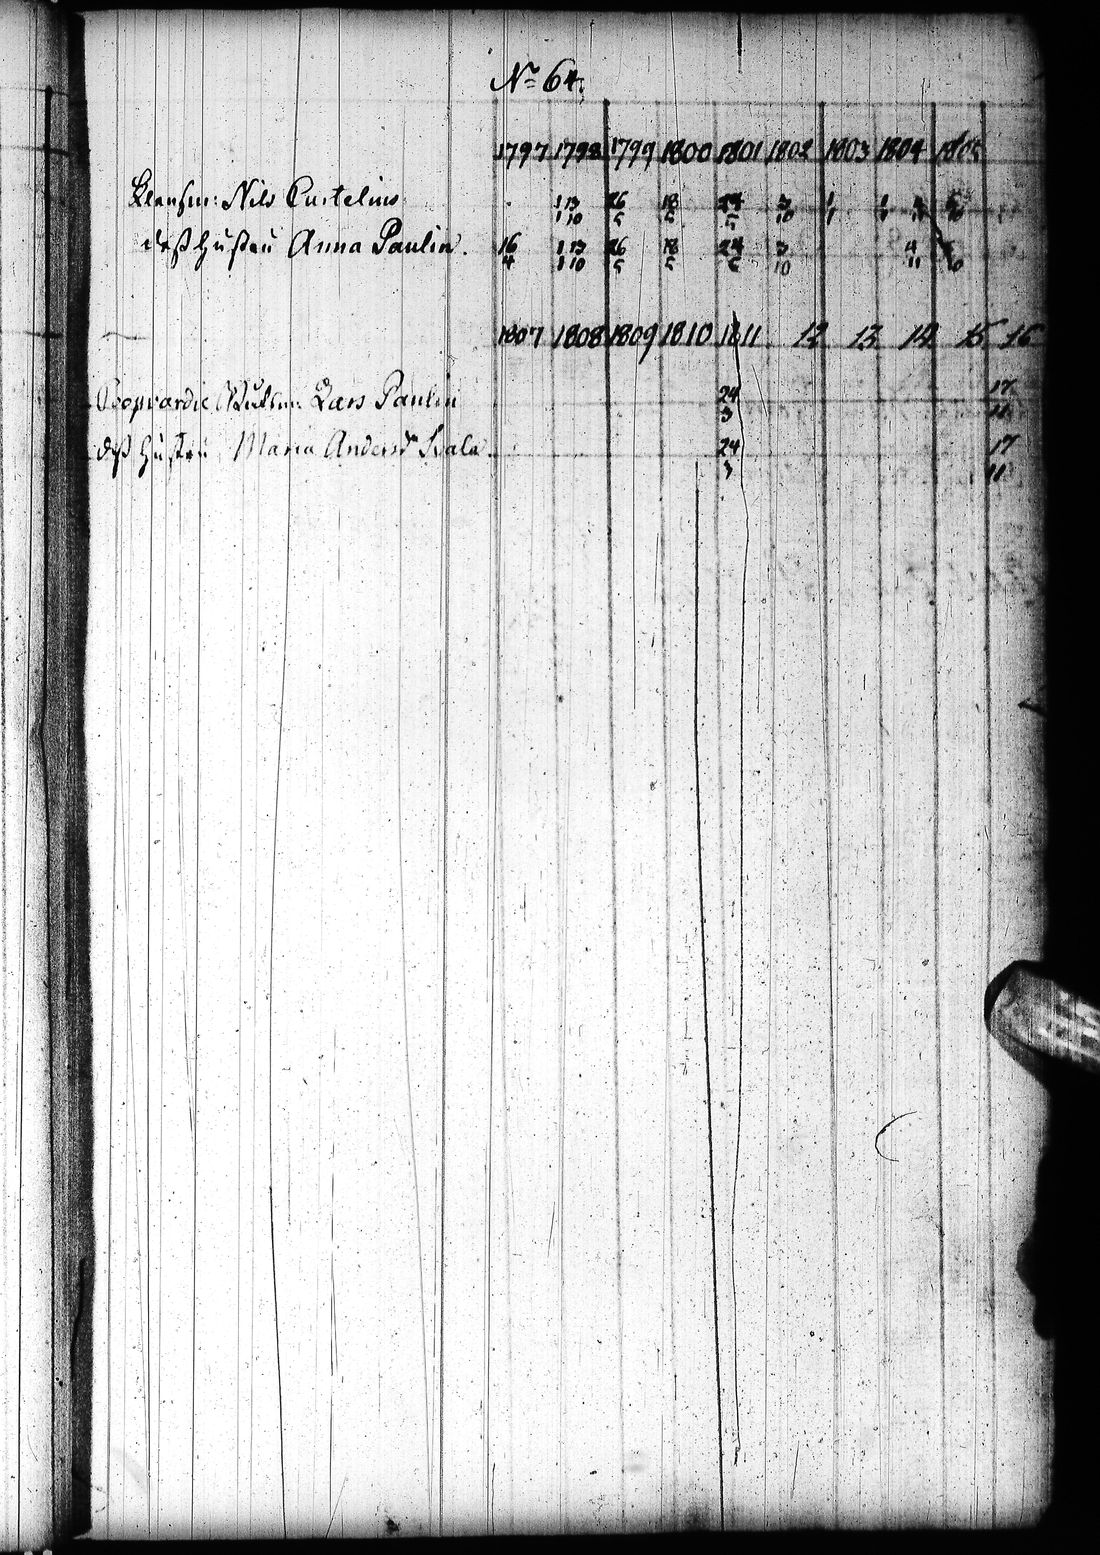 No 64.
1797 1798 1799 1800 1801 1802 1803 1804 1805
Nils Curtelius 1 13 26 18 24 3 1 1 4
1 10 5 5 5 10 1 1 11 10
dess hustru Anna Paulin. 16 1 13 26 18 24 3 4
4 1 10 5 5 5 10 11 10
1807 1808 1809 1810 1811 12 13 14 15 16
Lars Paulin 24 17
3 11
dess hustru Maria Andersdr 24 17
3 11